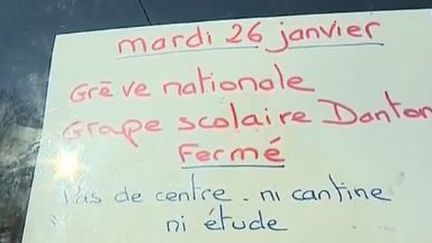 mardi 26 janvier
Grève nationale
Groupe scolaire Danton
Fermé
Pas de centre - ni cantine
ni étude